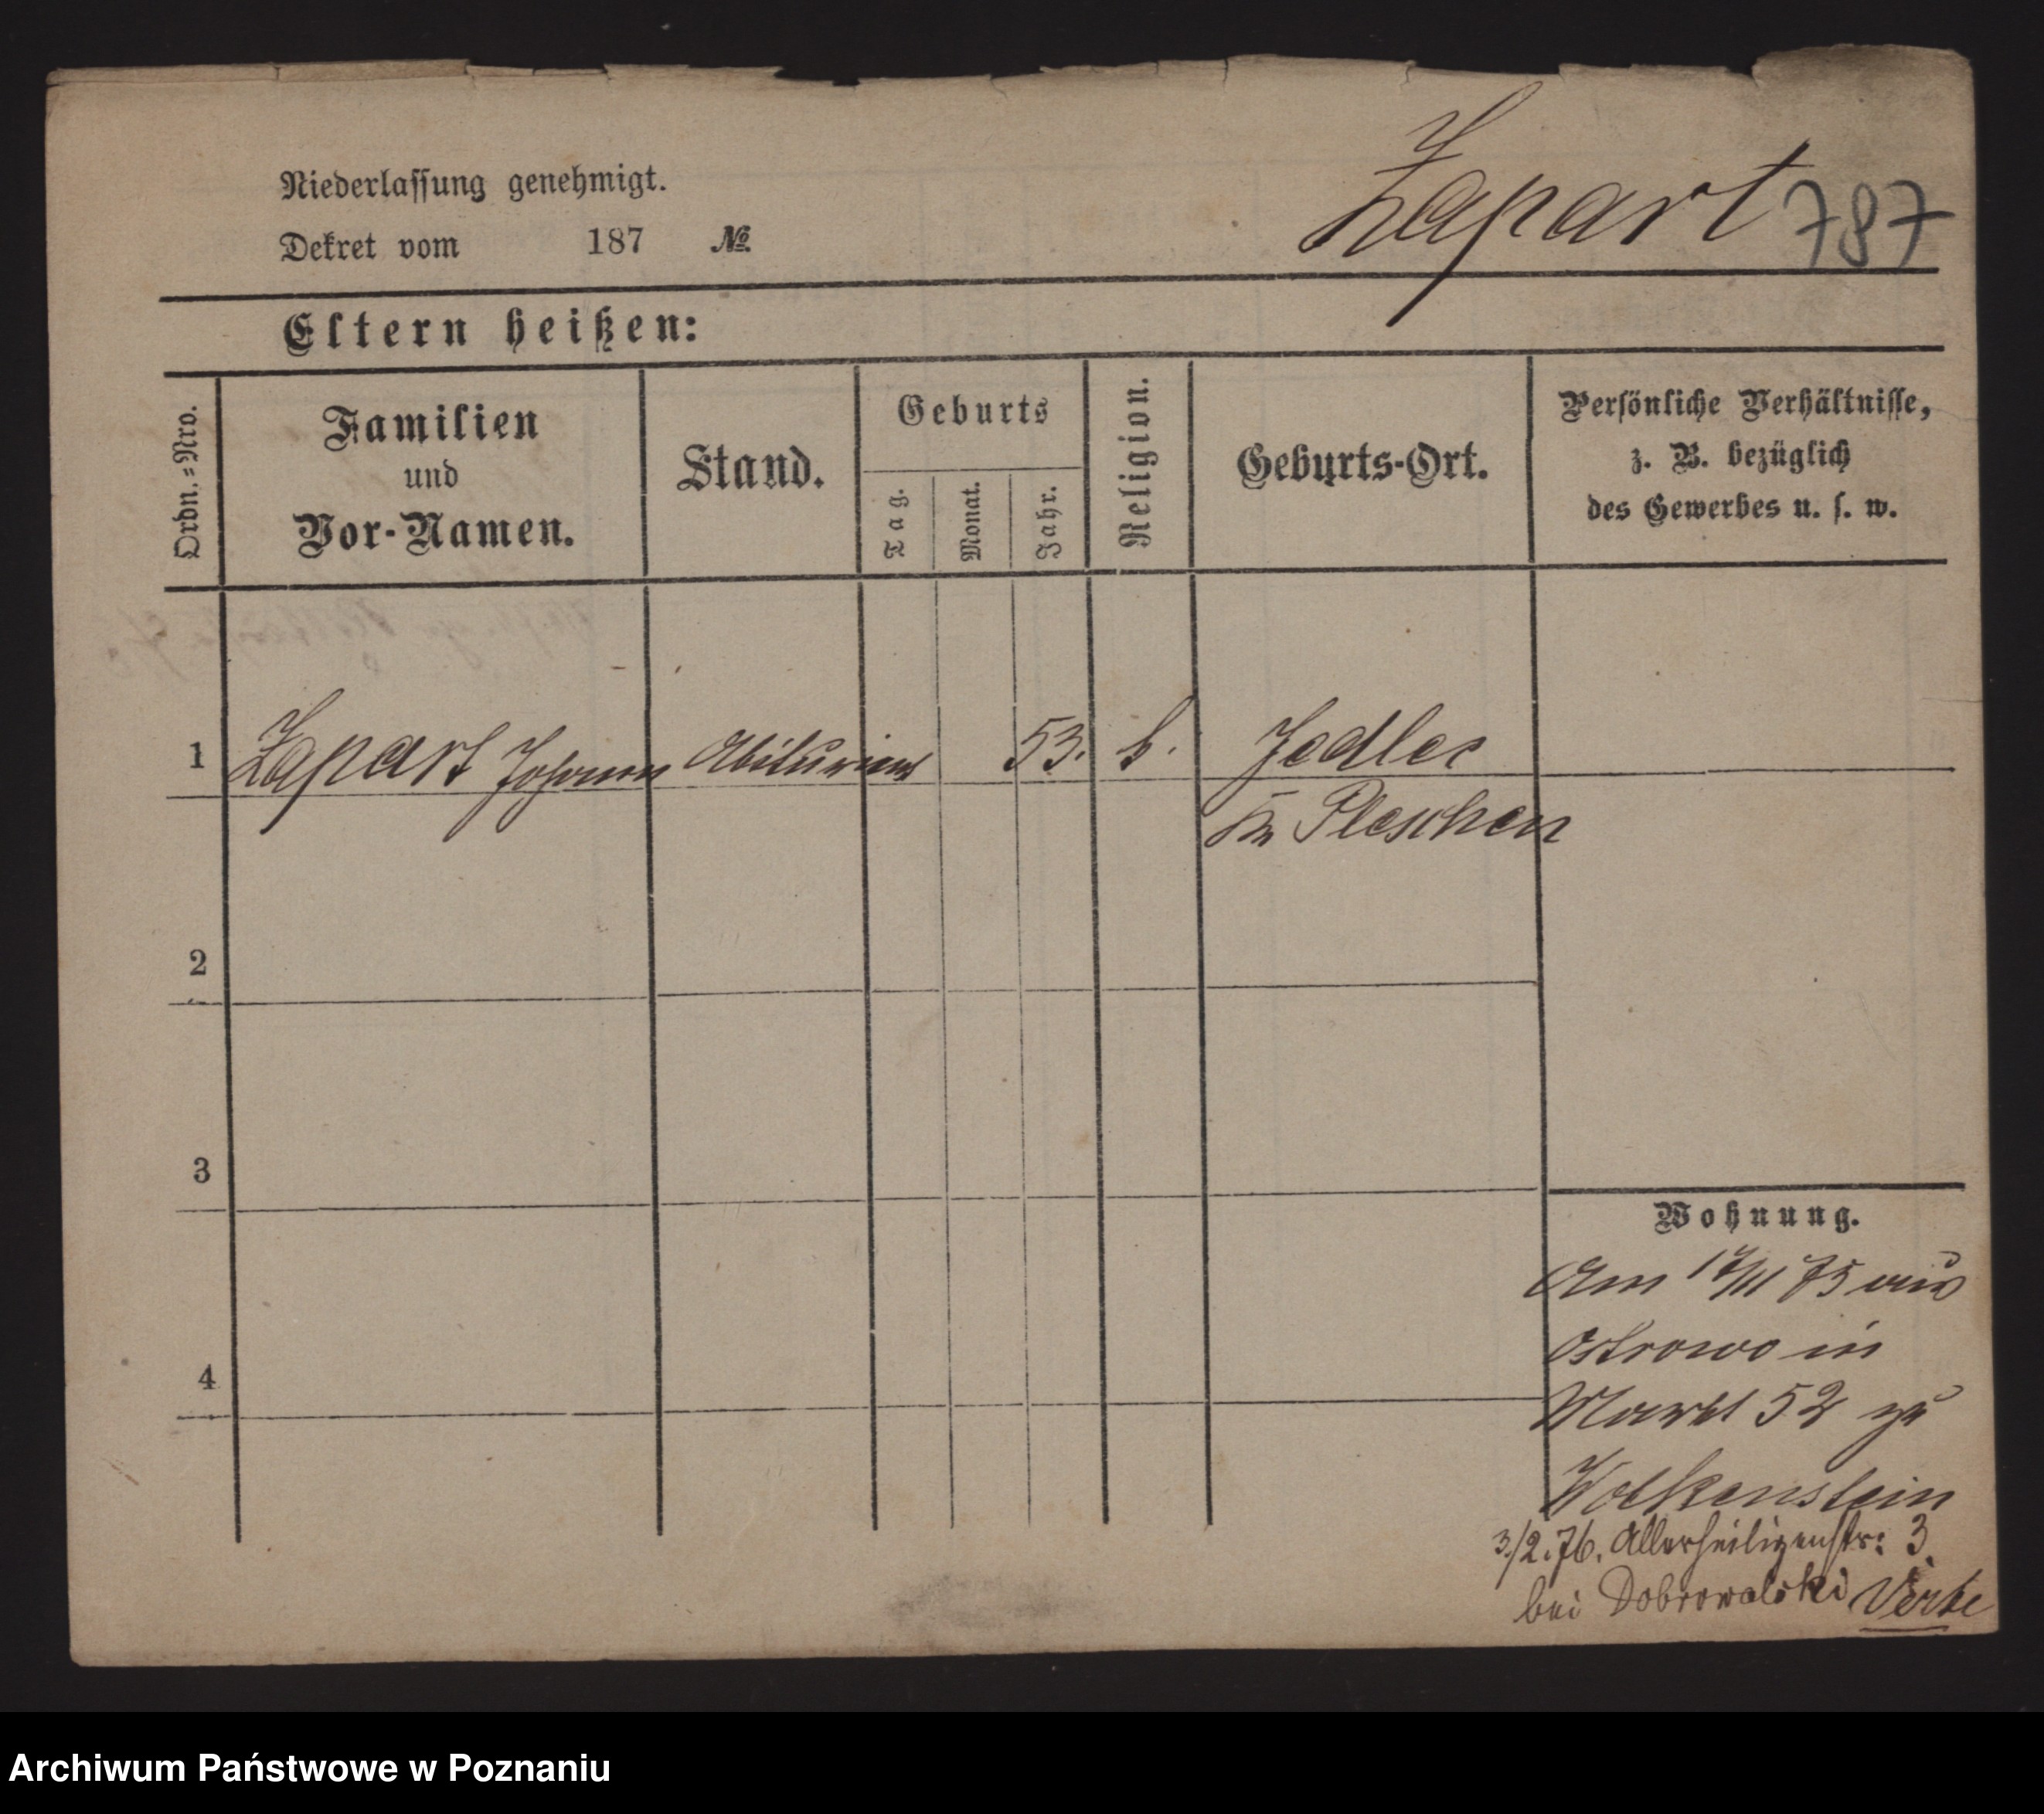 Niederlassung genehmigt.
Dekret vom 187 №
Zapart 787
Eltern heißen:
Ordn.=Nro.
Familien
und
Vor-Namen.
Stand.
Geburts
Tag.
Monat.
Jahr.
Religion.
Geburts-Ort.
Persönliche Verhältnisse,
z. B. bezüglich
des Gewerbes u. s. w.
1 Zapart Johann Abiturient 53. k. Jedlec
Kr Pleschen
2
3
4
Wohnung.
Am 17/11 75 aus
Ostrowo in
Markt 52 zu
Wolkenstein
3/2.76. Allerheiligenstr: 3
bei Dobrowalski
Archiwum Państwowe w Poznaniu